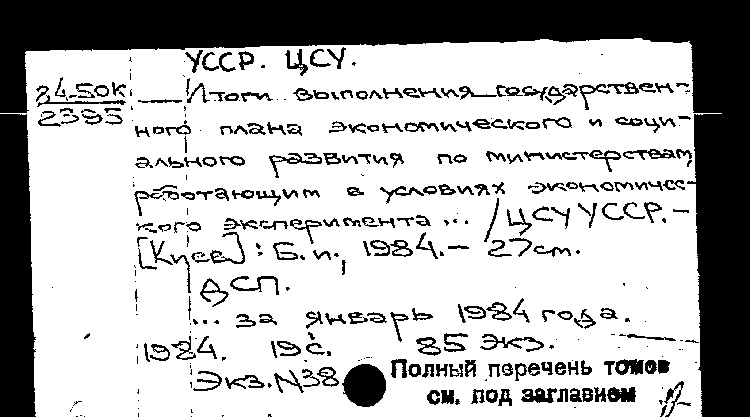 УССР. ЦСУ.
84-50К
2395
Итоги выполнения государствен-
ного плана экономического и соци-
ального развития по министерствам,
работающим в условиях экономичес-
кого эксперимента ... / ЦСУ УССР. –
[Киев] : Б.и., 1984. – 27 см.
ДСП.
... за январь 1984 года.
1984. 19 с. 85 экз.
Экз. N38
Полный перечень томов
см. под заглавием